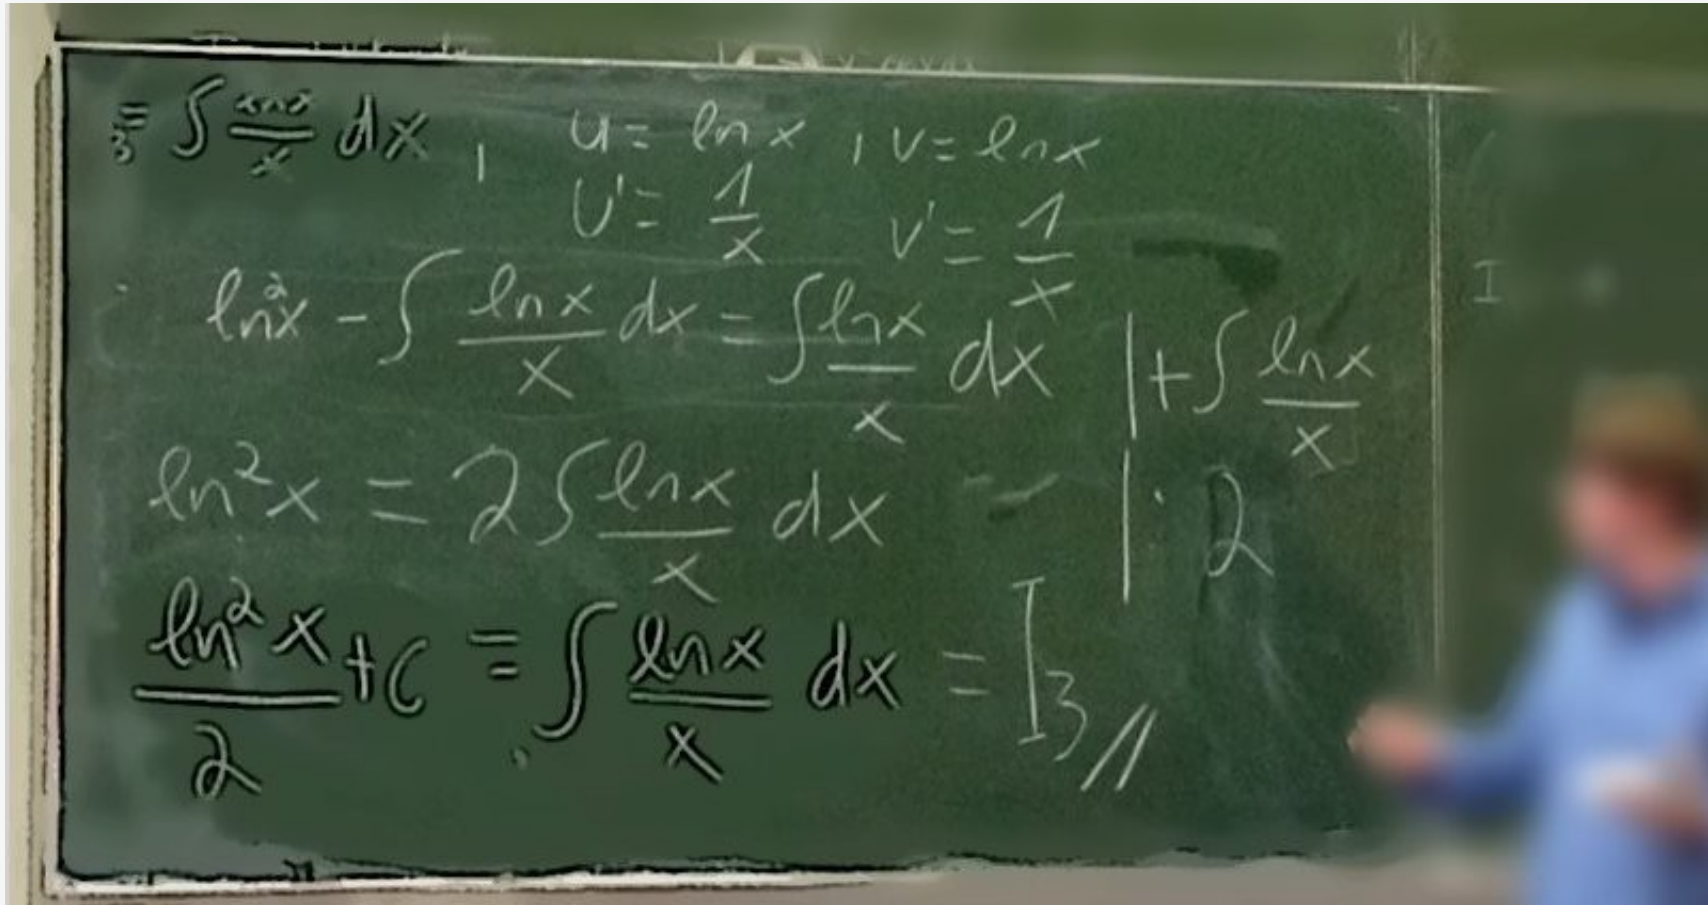 = ∫ dx , u = ln x , v = ln x
u' = 1/x v' = 1/x
ln²x - ∫ ln x/x dx = ∫ ln x/x dx | + ∫ ln x/x
ln²x = 2 ∫ ln x/x dx | : 2
ln²x/2 + C = ∫ ln x/x dx = I₃ //